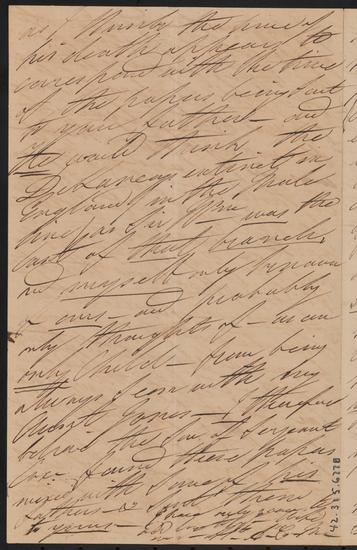 as I think the time of
his death appears to
correspond with the time
of the papers being sent
to your Father - and
He would think the
Delanceys extinct in
England in the Male
line, as Sir Wm was the
last of that branch,
and myself only known
to ours - and probably
only thought of - as an
only Child - from being
always seen with my
I therefore
believe the Son of Sergeant
found these papers
mixed with some of his
Father's - & sent them
to yours -
42.315.627B